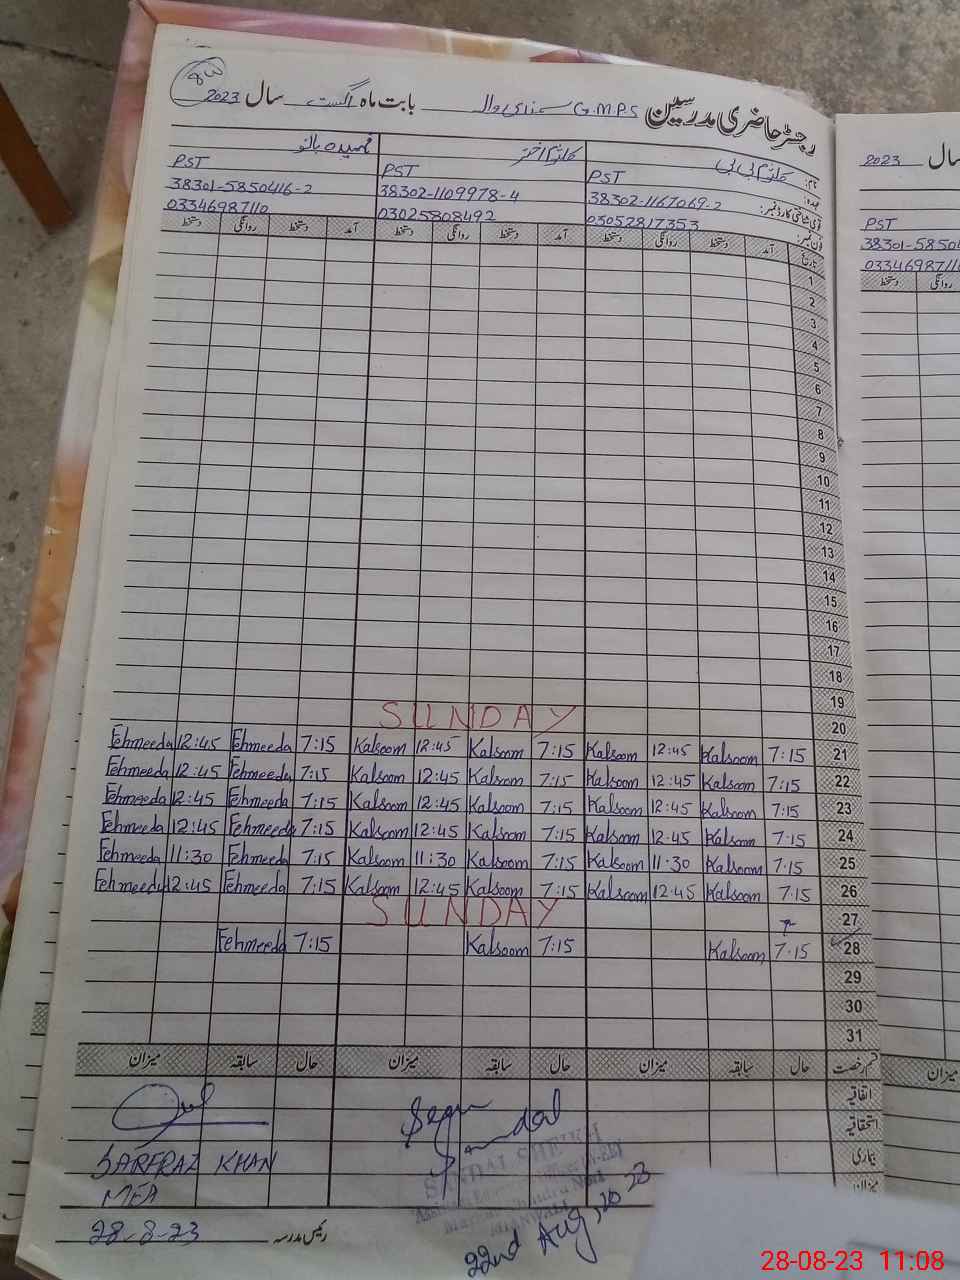 رجسٹر حاضری مدرسین G.M.P.S بابت ماہ اگست سال 2023
نام: کلثوم بی بی کلثوم اختر فہمیدہ بانو
عہدہ: PST PST PST
آئی شناختی کارڈ نمبر: 38302-1167069-2 38302-1109978-4 38301-5850416-2
فون نمبر: 03052817353 03025808492 03346987110
تاریخ آمد دستخط روانگی دستخط آمد دستخط روانگی دستخط آمد دستخط روانگی دستخط
1
2
3
4
5
6
7
8
9
10
11
12
13
14
15
16
17
18
19
SUNDAY 20
Fehmeeda 12:45 Fehmeeda 7:15 Kalsoom 12:45 Kalsoom 7:15 Kalsoom 12:45 Kalsoom 7:15 21
Fehmeeda 12:45 Fehmeeda 7:15 Kalsoom 12:45 Kalsoom 7:15 Kalsoom 12:45 Kalsoom 7:15 22
Fehmeeda 12:45 Fehmeeda 7:15 Kalsoom 12:45 Kalsoom 7:15 Kalsoom 12:45 Kalsoom 7:15 23
Fehmeeda 12:45 Fehmeeda 7:15 Kalsoom 12:45 Kalsoom 7:15 Kalsoom 12:45 Kalsoom 7:15 24
Fehmeeda 11:30 Fehmeeda 7:15 Kalsoom 11:30 Kalsoom 7:15 Kalsoom 11:30 Kalsoom 7:15 25
Fehmeeda 12:45 Fehmeeda 7:15 Kalsoom 12:45 Kalsoom 7:15 Kalsoom 12:45 Kalsoom 7:15 26
SUNDAY 27
Fehmeeda 7:15 Kalsoom 7:15 Kalsoom 7:15 28
29
30
31
قسم رخصت حال سابقہ میزان حال سابقہ میزان حال سابقہ میزان
اتفاقیہ
استحقاقیہ
بیماری
میزان
SARFRAZ KHAN
MEA
28-8-23
رئیس مدرسہ
22nd Aug, 2023
سال 2023
PST
38301-5850
033469871
روانگی دستخط
میزان
28-08-23 11:08